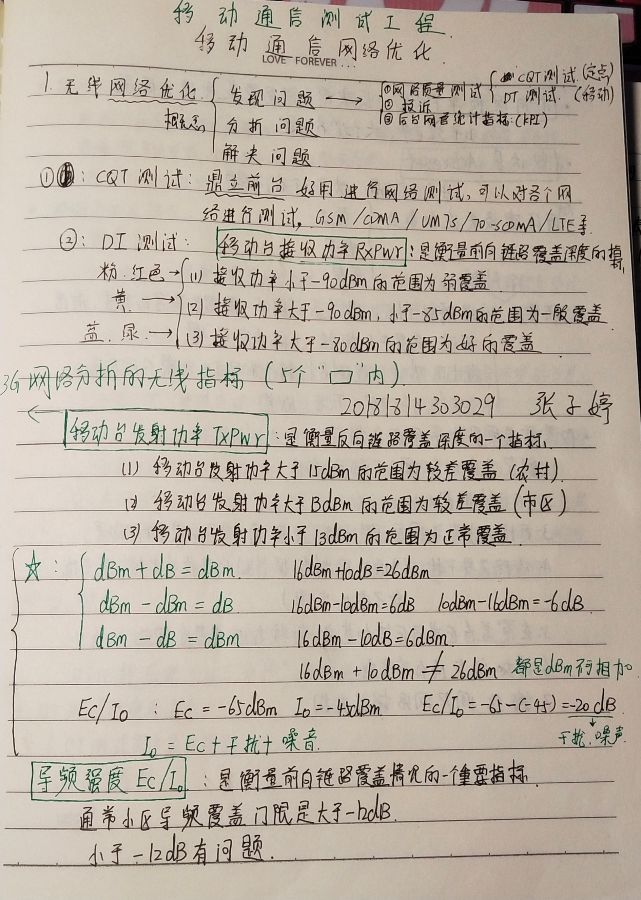 移动通信测试工程
移动通信网络优化
LOVE FOREVER...
1. 无线网络优化 { 发现问题 → ①网络质量测试 { CQT测试 (定点)
概念 ②投诉 DT测试 (移动)
分析问题 ③后台网管统计指标(KPI)
解决问题
①: CQT测试: 鼎立前台 好用 进行网络测试, 可以对各个网
络进行测试, GSM/CDMA/UMTS/TD-SCDMA/LTE等
②: DT测试: 移动台接收功率RxPwr : 是衡量前向链路覆盖深度的指标
粉.红色→ (1) 接收功率小于-90dBm的范围为弱覆盖
黄 → (2) 接收功率大于-90dBm, 小于-85dBm的范围为一般覆盖
蓝.绿.→ (3) 接收功率大于-80dBm的范围为好的覆盖
3G网络分析的无线指标 (5个"口"内).
20181814303029 张子婷
移动台发射功率TxPwr : 是衡量反向链路覆盖深度的一个指标.
(1) 移动台发射功率大于15dBm的范围为较差覆盖 (农村).
(2) 移动台发射功率大于13dBm的范围为较差覆盖 (市区)
(3) 移动台发射功率小于13dBm的范围为正常覆盖.
☆: dBm+dB=dBm. 16dBm+10dB=26dBm
dBm-dBm=dB. 16dBm-10dBm=6dB 10dBm-16dBm=-6dB.
dBm-dB=dBm 16dBm-10dB=6dBm.
16dBm+10dBm≠26dBm 都是dBm不相加
Ec/Io : Ec=-65dBm Io=-45dBm Ec/Io=-65-(-45)=-20dB
Io=Ec+干扰+噪音. 干扰.噪声
导频强度Ec/Io : 是衡量前向链路覆盖情况的一个重要指标.
通常小区导频覆盖门限是大于-12dB.
小于-12dB有问题.